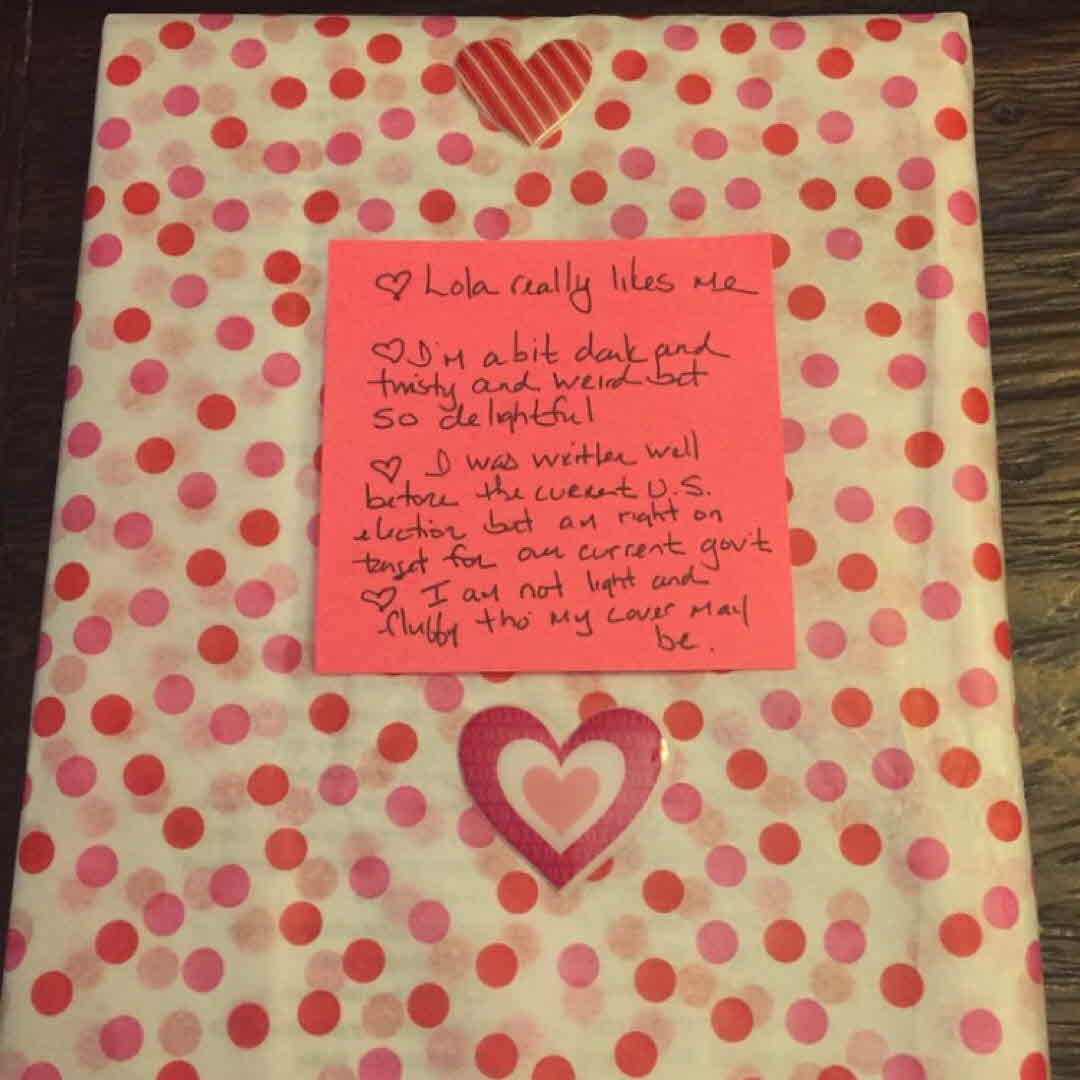 ♡ Lola really likes me
♡ I'm a bit dark and
twisty and weird but
so delightful
♡ I was written well
before the current U.S.
election but am right on
target for our current gov't
♡ I am not light and
fluffy tho' my cover may
be.